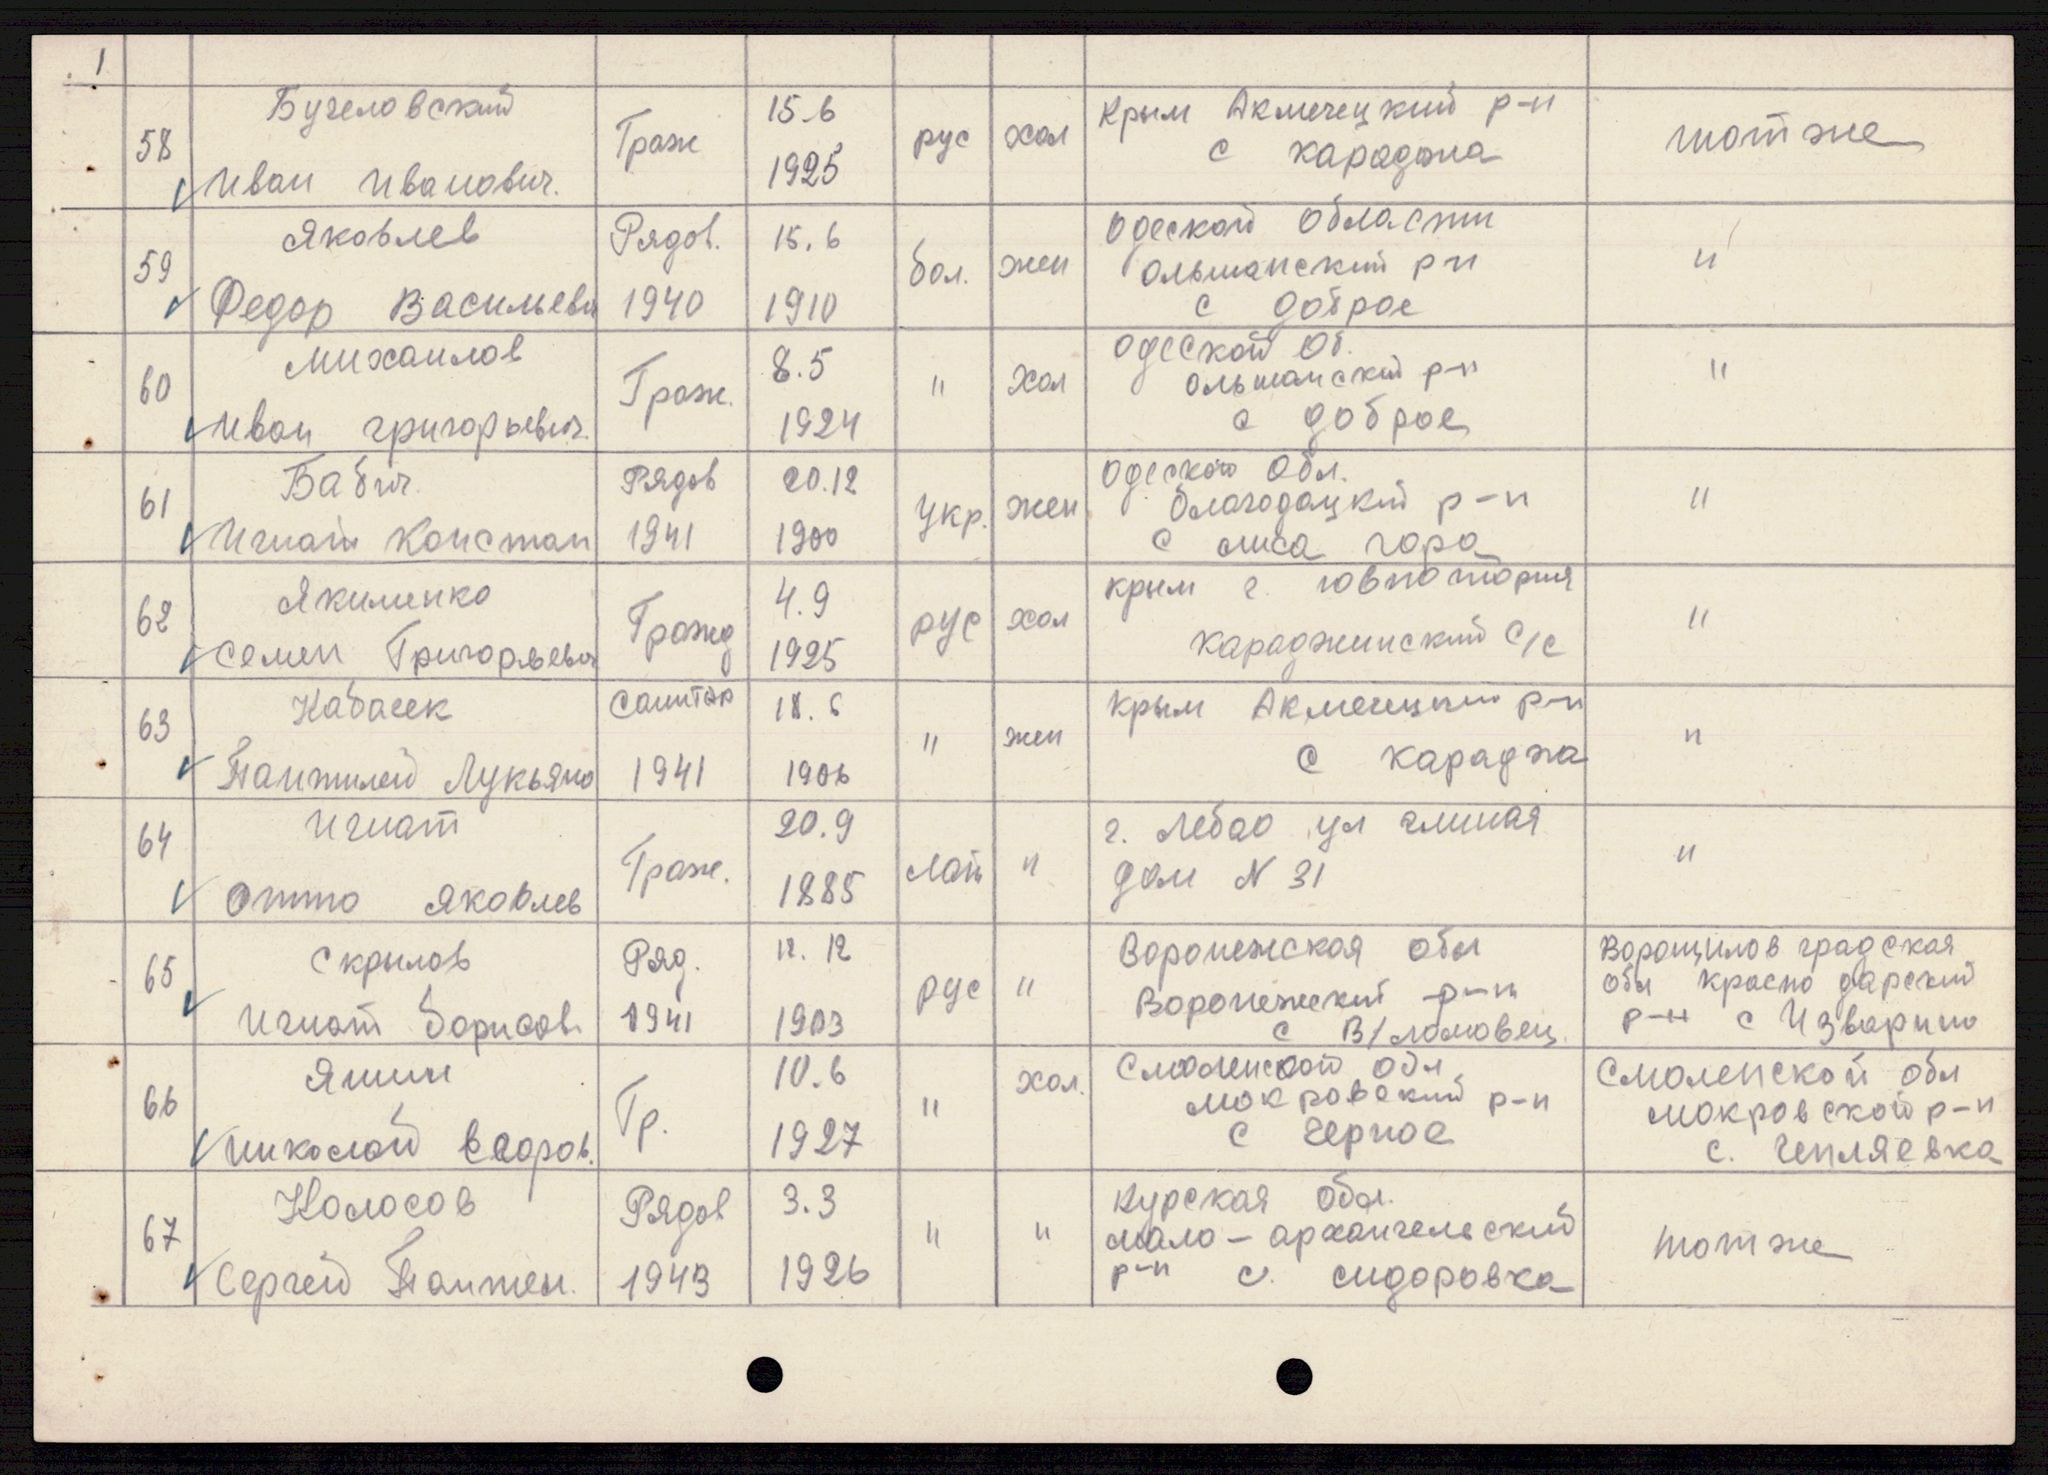 1
58 Бучеловский Иван Иванович. Граж 15.6 1925 рус хол Крым Акмечецкий р-н с Караджа тотже
59 Яковлев Федор Васильеви Рядов. 1940 15.6 1910 бол. жен Одеской Области Ольшанский р-н с Доброе "
60 Михаилов Иван Григорьевич. Граж. 8.5 1924 " хол Одеской Об. Ольшанский р-н с Доброе "
61 Бабич. Игнат Констан Рядов 1941 20.12 1900 Укр. жен Одеской Обл. благодацкий р-н с лиса гора "
62 Якименко Семен Григорьевич Гражд 4.9 1925 рус хол Крым г. ювпотория Караджинский С/с "
63 Кабасек Пантилей Лукьяно Санитар 1941 18.6 1906 " жен Крым Акмечецкий р-н с Караджа "
64 Игнат Отто Яковлев Граж. 20.9 1885 лат " г. Лебао ул глиная дом N 31 "
65 Скрылов Игнат Борисов. Ряд. 1941 12.12 1903 рус " Воронежская обл Воронежский р-н с В/ломовец. Ворошилов градская обл Красно дарский р-н с Изварино
66 Яшин Николай Федоров. Гр. 10.6 1927 " хол. Смоленской обл мокровский р-н с Черное Смоленской обл мокровской р-н с. Чепляевка
67 Колосов Сергей Пантел. Рядов 1943 3.3 1926 " " Курская Обл. мало-архангельский р-н с. сидоровка тотже